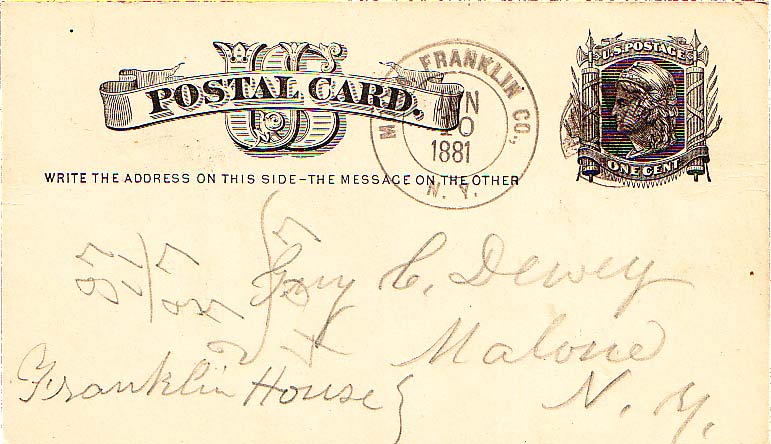 US
POSTAL CARD.
FRANKLIN CO.,
1881
N. Y.
U.S. POSTAGE
ONE CENT
WRITE THE ADDRESS ON THIS SIDE – THE MESSAGE ON THE OTHER
Guy C. Dewey
Malone
N. Y.
Franklin House